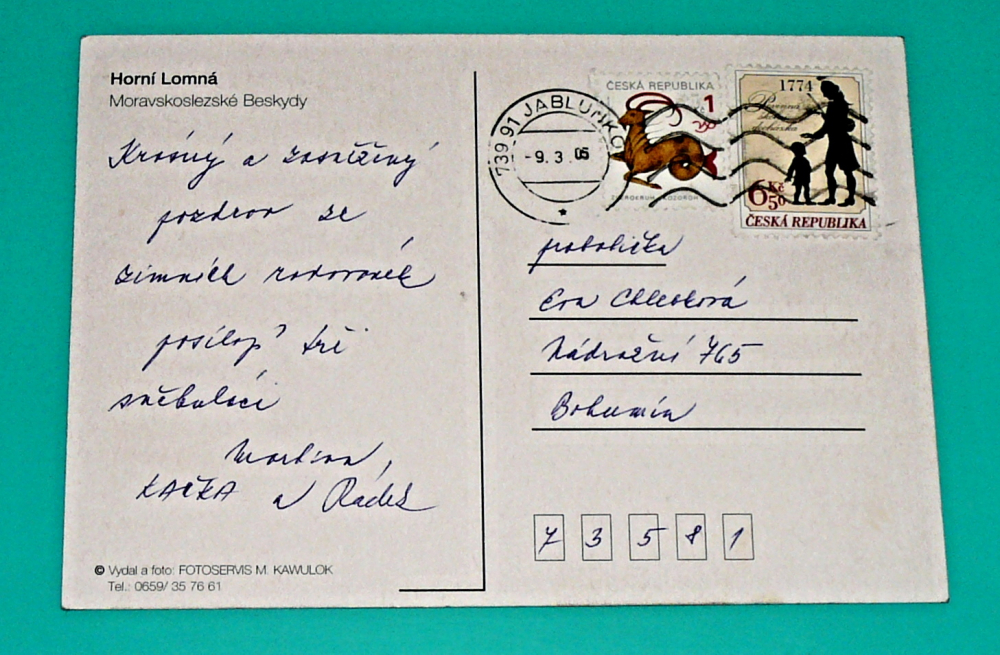 Horní Lomná
Moravskoslezské Beskydy
Krásný a zasněžený
pozdrav ze
zimních radovánek
posílají tři
sněhuláci
Martina,
KAČKA a Radek
© Vydal a foto: FOTOSERVIS M. KAWULOK
Tel.: 0659/ 35 76 61
739 91 JABLUNKO
-9.3.05
ČESKÁ REPUBLIKA
1
Kč
KOZOROH
1774
Povinná
školní
docházka
6 Kč
50
ČESKÁ REPUBLIKA
Eva
Nádražní 765
Bohumín
7 3 5 8 1